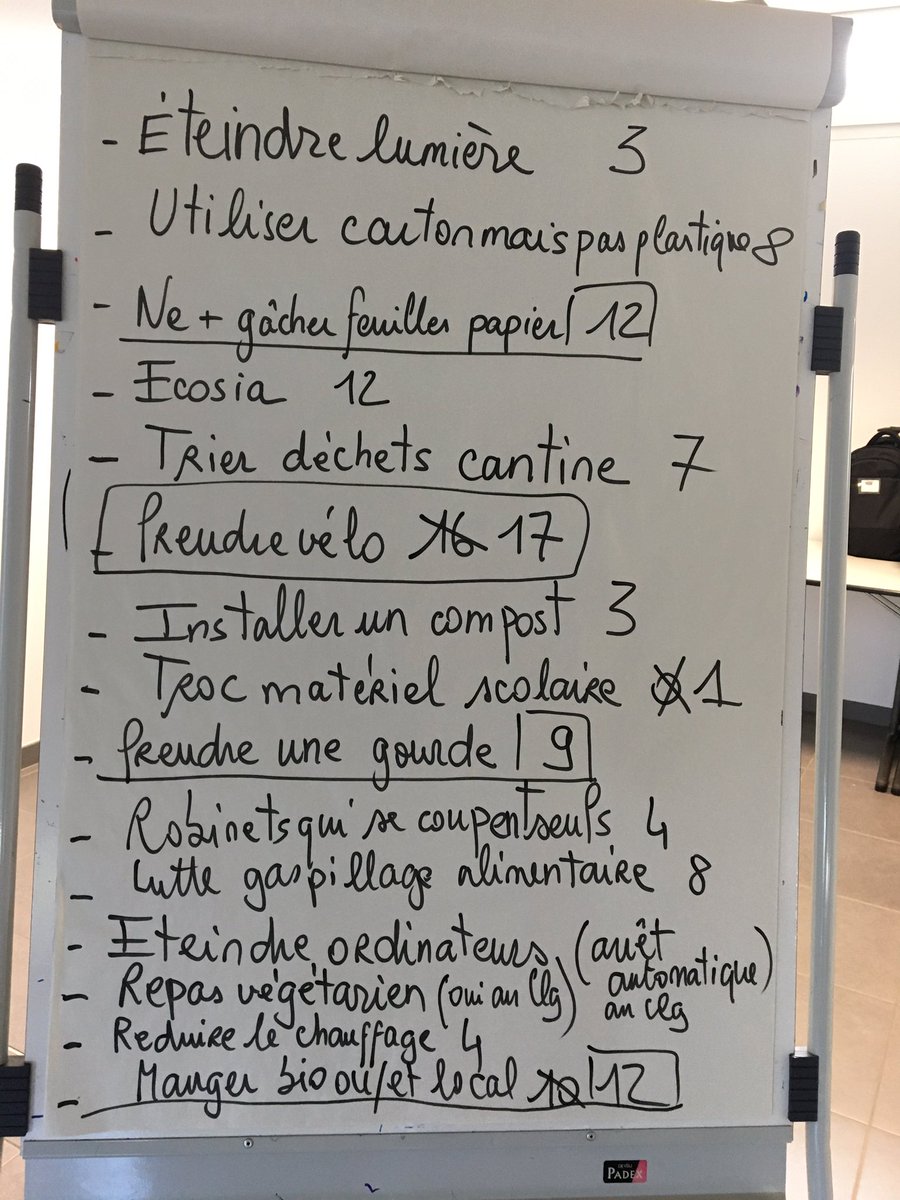 - Éteindre lumière 3
- Utiliser carton mais pas plastique 8
- Ne + gâcher feuilles papier 12
- Ecosia 12
- Trier déchets cantine 7
- Prendre vélo 16 17
- Installer un compost 3
- Troc matériel scolaire 1
- Prendre une gourde 9
- Robinets qui se coupent seuls 4
- Lutte gaspillage alimentaire 8
- Eteindre ordinateurs (arrêt automatique) au clg
- Repas végétarien (oui au clg)
- Reduire le chauffage 4
- Manger bio ou/et local 10 12
PADEX